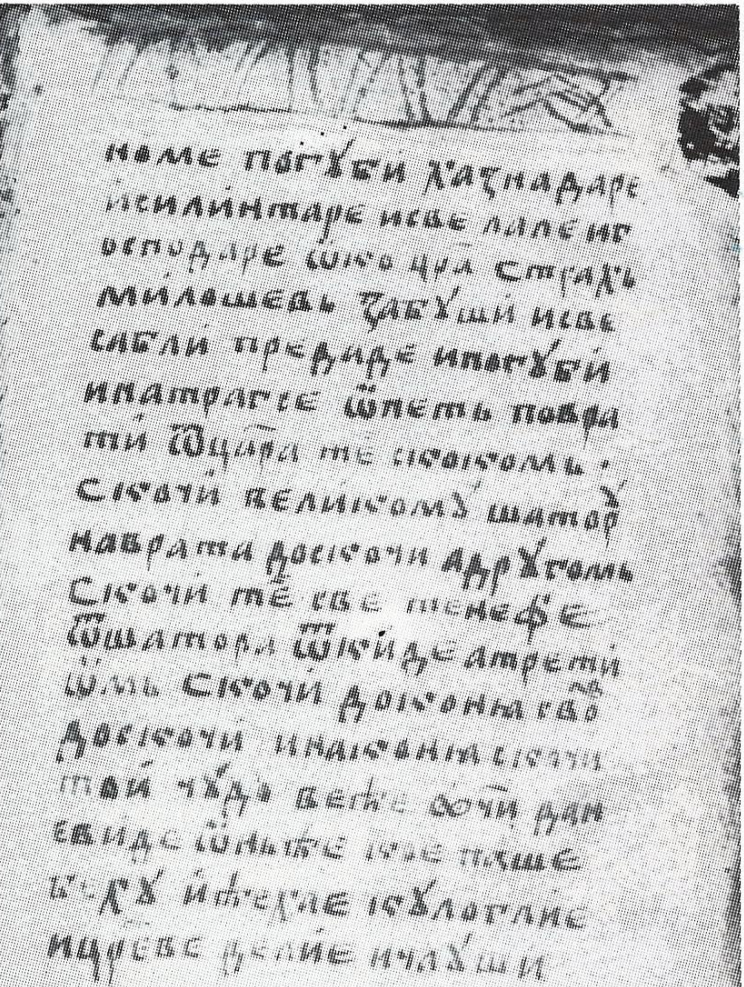 номе погꙋби хазнадаре
исилинтаре исве лале иг
осподаре ѿко цра страхь
милошевь забꙋши исве
сабли предиде ипогꙋби
инатрагсе ѿпеть повра
ти ѿцара те скокомь ·
скочи великомꙋ шаторꙋ
наврата доскочи адрꙋгомь
скочи те све тенефе
ѿшатора ѿкиде атрети
ѿмь скочи доконꙗ сво
доскочи инаконꙗ скочи
той чꙋдо веће ꚙчи дан
евиде кое паше
бехꙋ ићехае кꙋлоглие
ицреве делие ичаꙋши